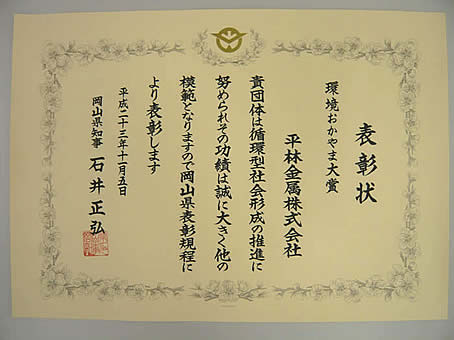 表彰状
環境おかやま大賞
平林金属株式会社
貴団体は循環型社会形成の推進に
努められその功績は誠に大きく他の
模範となりますので岡山県表彰規程に
より表彰します
平成二十三年十一月五日
岡山県知事 石井正弘